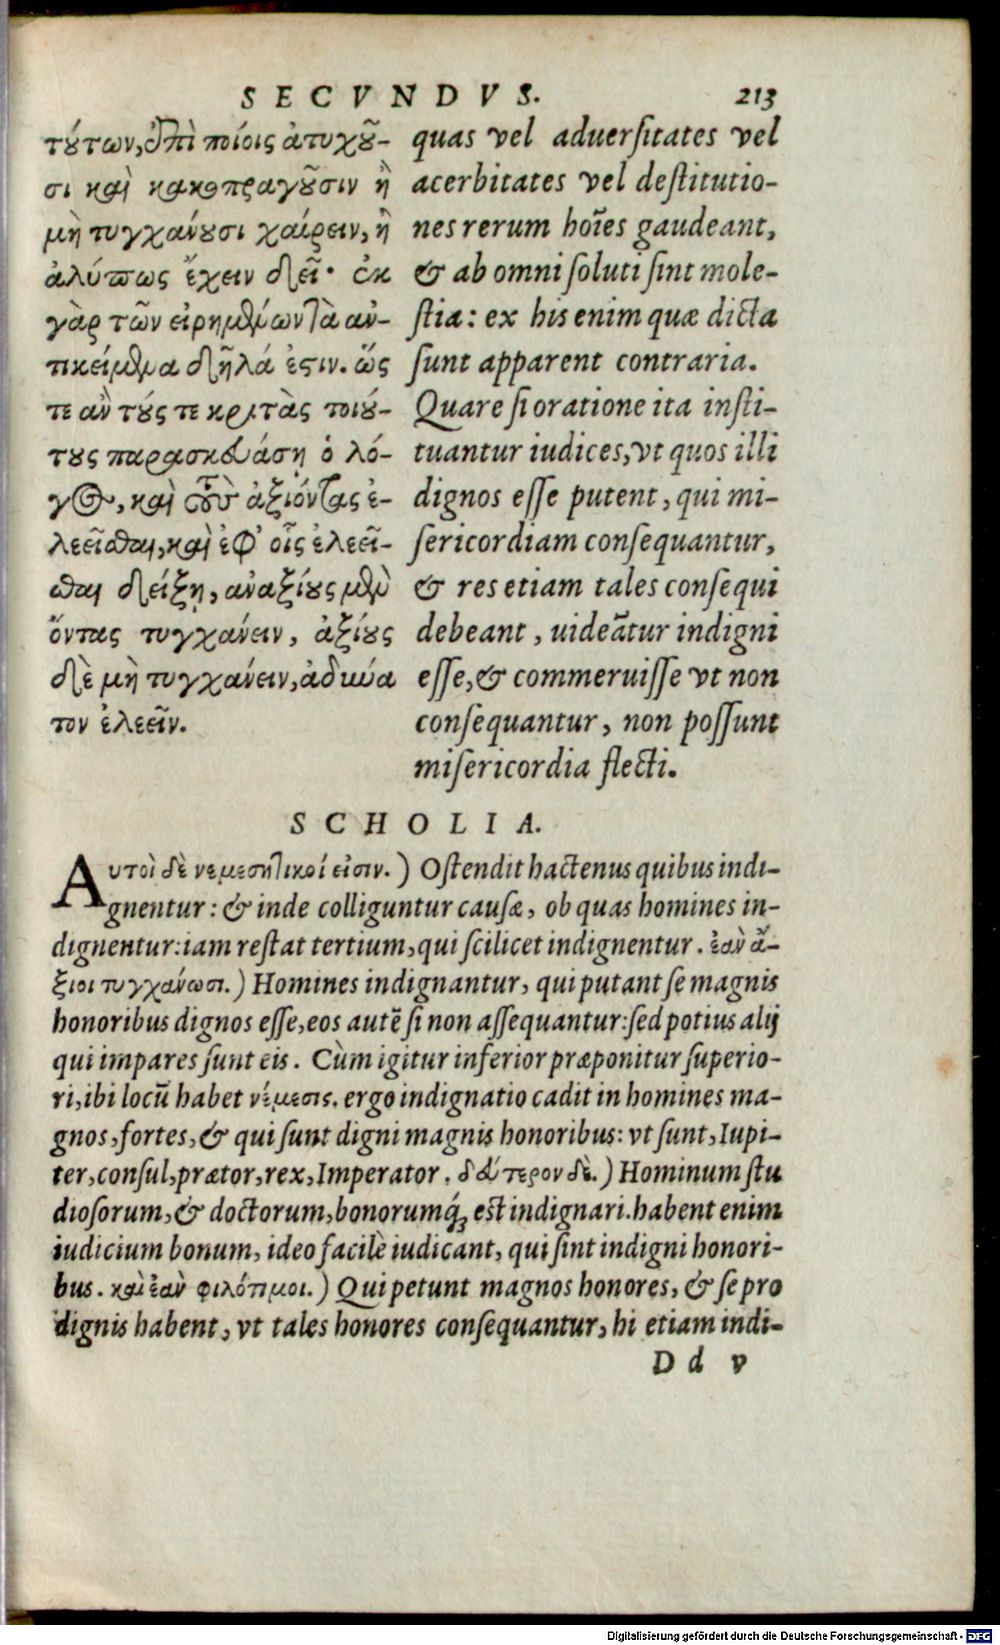 SECVNDVS. 213
τȣ́των, ἐπὶ ποίοις ἀτυχȣ͂-
σι καὶ κακοπραγȣ͂σιν ἢ
μὴ τυγχάνȣσι χαίρειν, ἢ
ἀλύπως ἔχειν δεῖ· ἐκ
γὰρ τῶν εἰρημένων τὰ ἀν-
τικείμενα δῆλά ἐστιν. ὥς
τε ἂν τȣ́ς τε κριτὰς τοιȣ́-
τȣς παρασκευάσῃ ὁ λό-
γος, καὶ τοὺς ἀξιόντας ἐ-
λεεῖσθαι, καὶ ἐφ' οἷς ἐλεεῖ-
σθαι δείξῃ, ἀναξίȣς μὲν
ὄντας τυγχάνειν, ἀξίȣς
δὲ μὴ τυγχάνειν, ἀδύνα
τον ἐλεεῖν.
quas vel aduerſitates vel
acerbitates vel deſtitutio-
nes rerum hoīes gaudeant,
& ab omni ſoluti ſint mole-
ſtia: ex his enim quæ dicta
ſunt apparent contraria.
Quare ſi oratione ita inſti-
tuantur iudices, vt quos illi
dignos eſſe putent, qui mi-
ſericordiam conſequantur,
& res etiam tales conſequi
debeant, uideātur indigni
eſſe, & commeruiſſe vt non
conſequantur, non poſſunt
miſericordia flecti.
SCHOLIA.
Αυτοὶ δὲ νεμεσητικοί εἰσιν.) Oſtendit hactenus quibus indi-
gnentur: & inde colliguntur cauſæ, ob quas homines in-
dignentur: iam reſtat tertium, qui ſcilicet indignentur. ἐὰν ἄ-
ξιοι τυγχάνωσι.) Homines indignantur, qui putant ſe magnis
honoribus dignos eſſe, eos autē ſi non aſſequantur: ſed potius alij
qui impares ſunt eis. Cùm igitur inferior præponitur ſuperio-
ri, ibi locū habet νέμεσις. ergo indignatio cadit in homines ma-
gnos, fortes, & qui ſunt digni magnis honoribus: vt ſunt, Iupi-
ter, conſul, prætor, rex, Imperator. δεύτερον δὲ.) Hominum ſtu
dioſorum, & doctorum, bonorumq́; eſt indignari. habent enim
iudicium bonum, ideo facilè iudicant, qui ſint indigni honori-
bus. καὶ ἐὰν φιλότιμοι.) Qui petunt magnos honores, & ſe pro
dignis habent, vt tales honores conſequantur, hi etiam indi-
Dd v
Digitalisierung gefördert durch die Deutsche Forschungsgemeinschaft - DFG